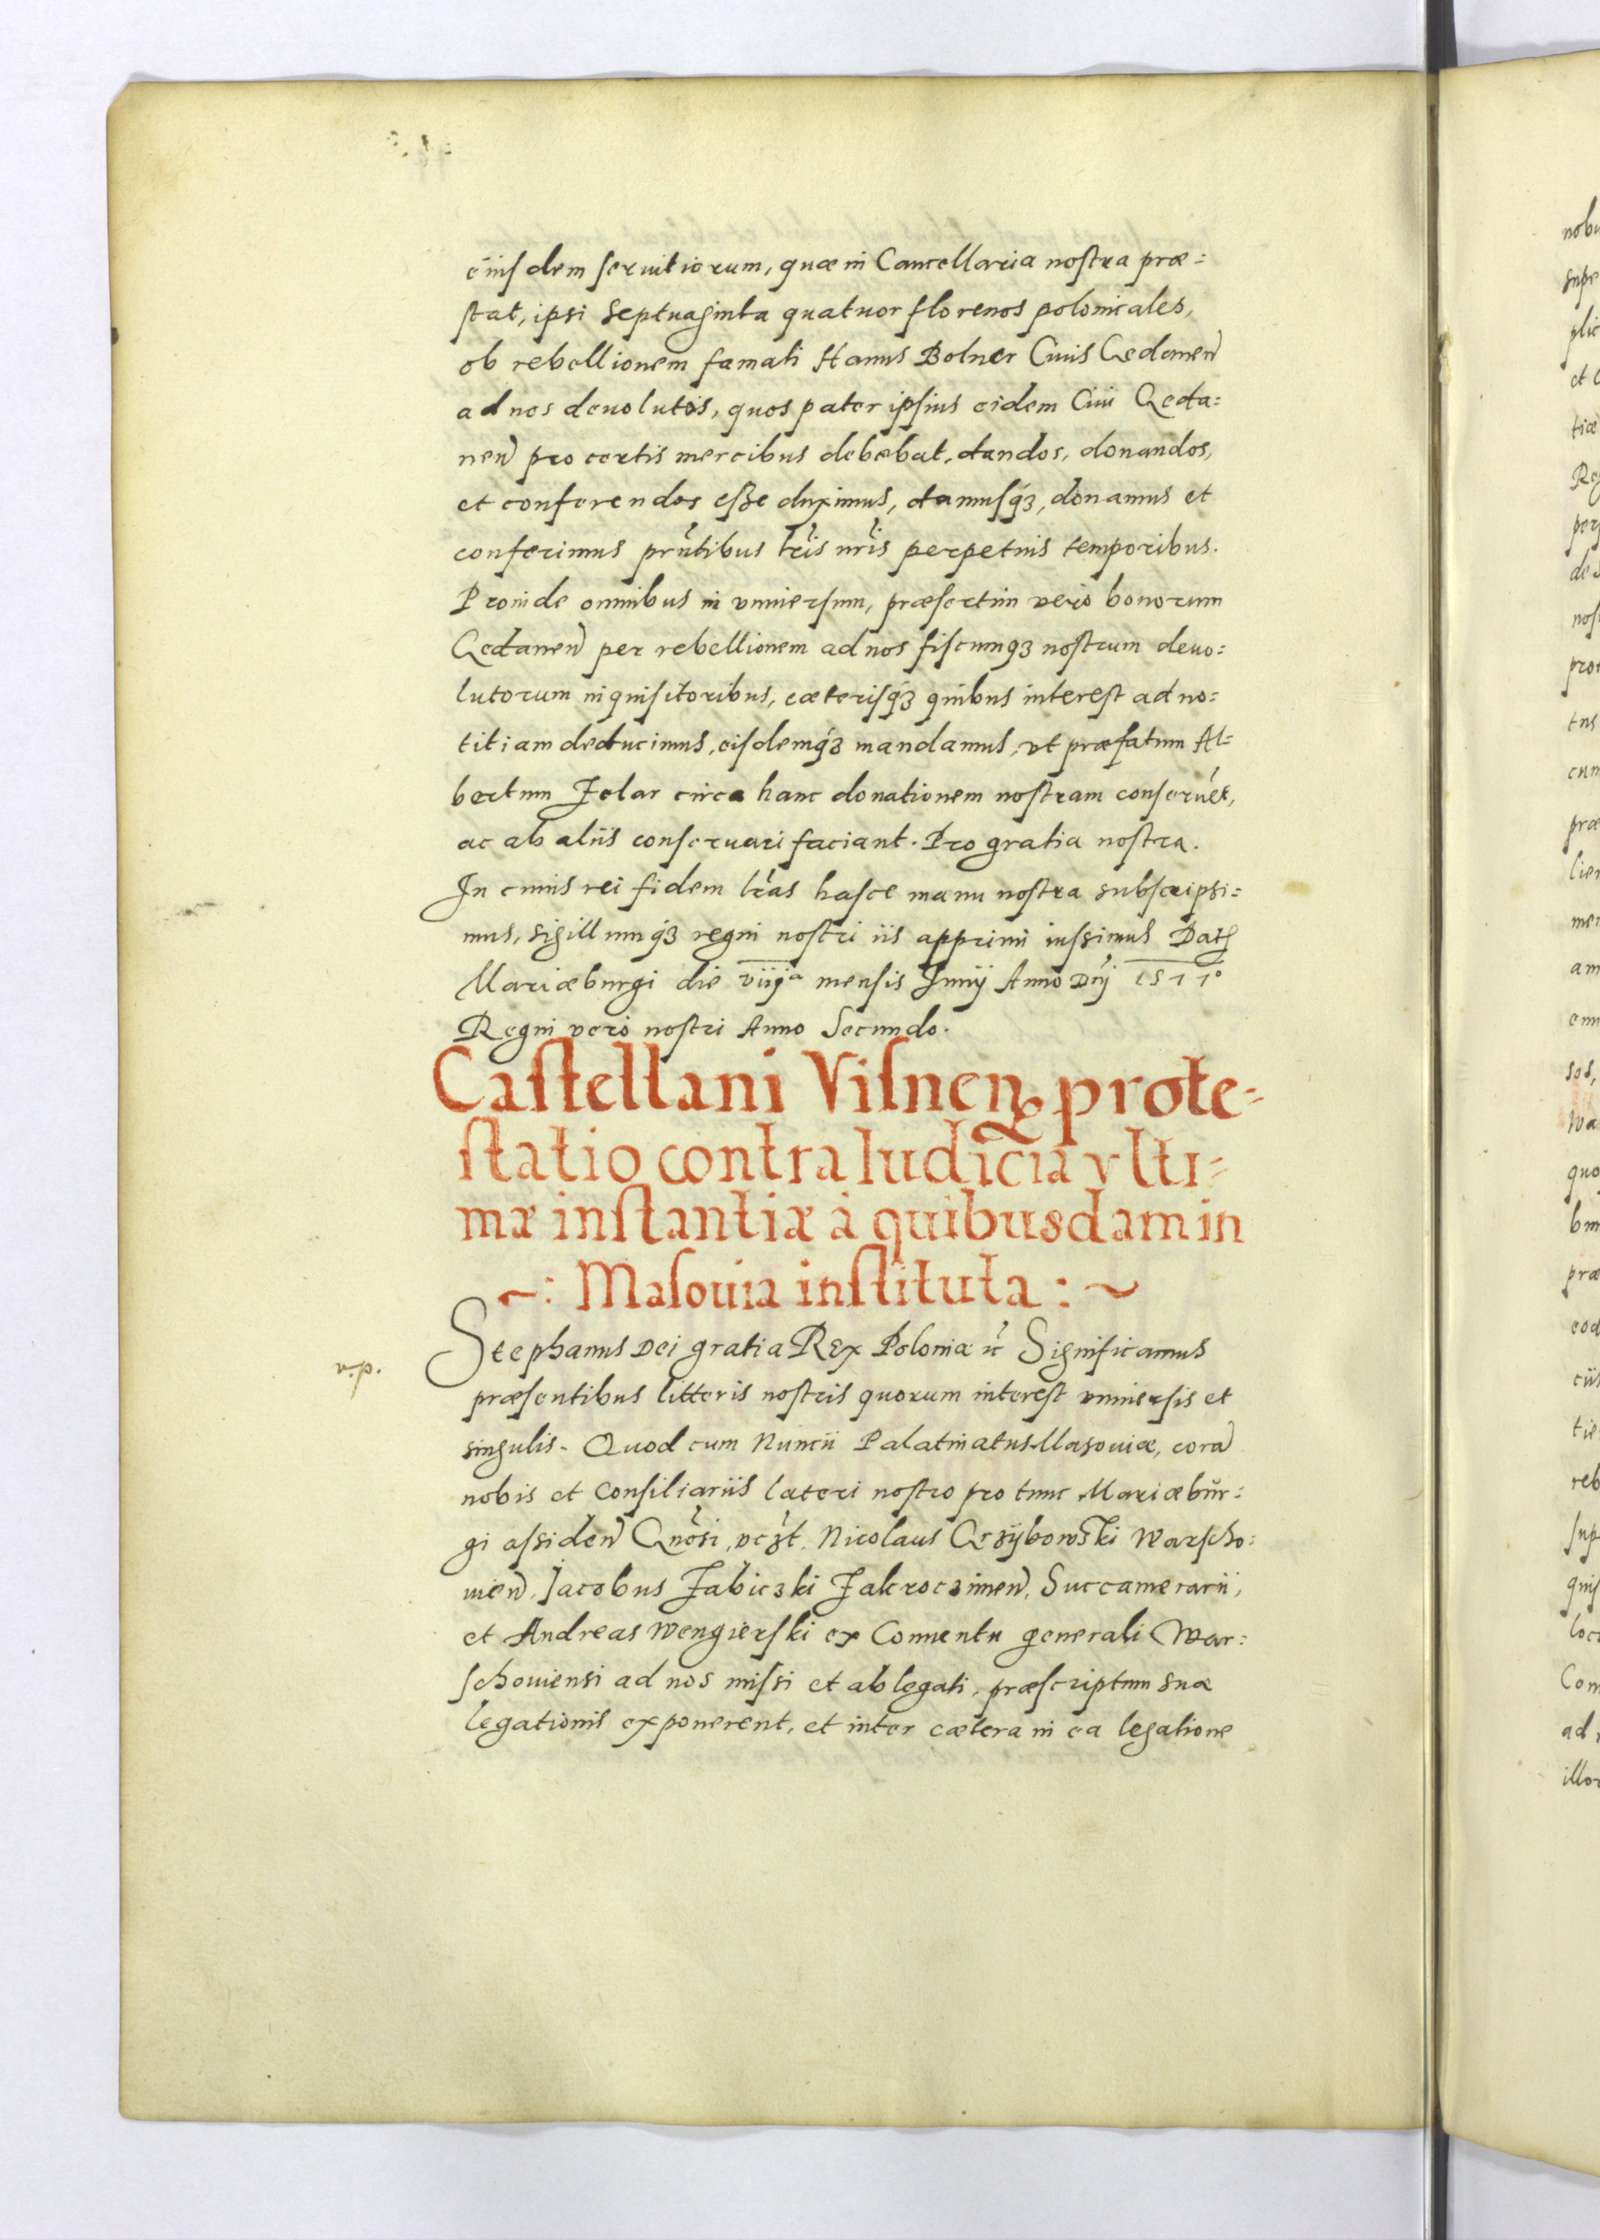 eiusdem seruitiorum, quæ in Cancellaria nostra præ:
stat, ipsi septuaginta quatuor florenos polonicales,
ob rebellionem famati Hanus Bolner Ciuis Gedanen̄
ad nos deuolutos, quos pater ipsius eidem Ciui Geda:
nen̄ pro certis mercibus debebat, dandos, donandos,
et conferendos esse duximus, damusq́ꝫ, donamus et
conferimus prn̄tibus lr̄is nr̄is perpetuis temporibus.
Proinde omnibus in vniuersum, præsertim vero bonorum
Gedanen̄ per rebellionem ad nos fiscumqꝫ nostrum deuo:
lutorum inquisitoribus, cæterisq́ꝫ quibus interest ad no:
titiam deducimus, eisdemq́ꝫ mandamus, vt præfatum Al:
bertum Felar circa hanc donationem nostram conseruēt,
ac ab aliis conseruari faciant. Pro gratia nostra.
In cuius rei fidem lr̄as hasce manu nostra subscripsi:
mus, sigillumq́ꝫ regni nostri iis apprimi iussimus Datꝭ
Mariæburgi die viijᵃ mensis Junij Anno Dnj̄ 1577°
Regni vero nostri Anno Secundo.
Castellani Visnen prote-
statio contra Iudicia vlti-
mæ instantiæ à quibusdam in
~: Masouia instituta : ~
Stephanus Dei gratia Rex Poloniæ ꝛc̄ Significamus
præsentibus litteris nostris quorum interest vniuersis et
singulis. Quod cum Nuncii Palatinatus Masouiæ, corā
nobis et Consiliariis lateri nostro pro tunc Mariæbŭr:
gi assiden̄ Gnōsi, vcꝫt. Nicolaus Grzÿbowski Warscho:
uien̄. Jacobus Zabiczki Zakroczimen̄, Succamerarii,
et Andreas Wengierski ex Conuentu generali War:
schouiensi ad nos missi et ablegati, præscriptum suæ
legationis exponerent, et inter cætera in ea legatione